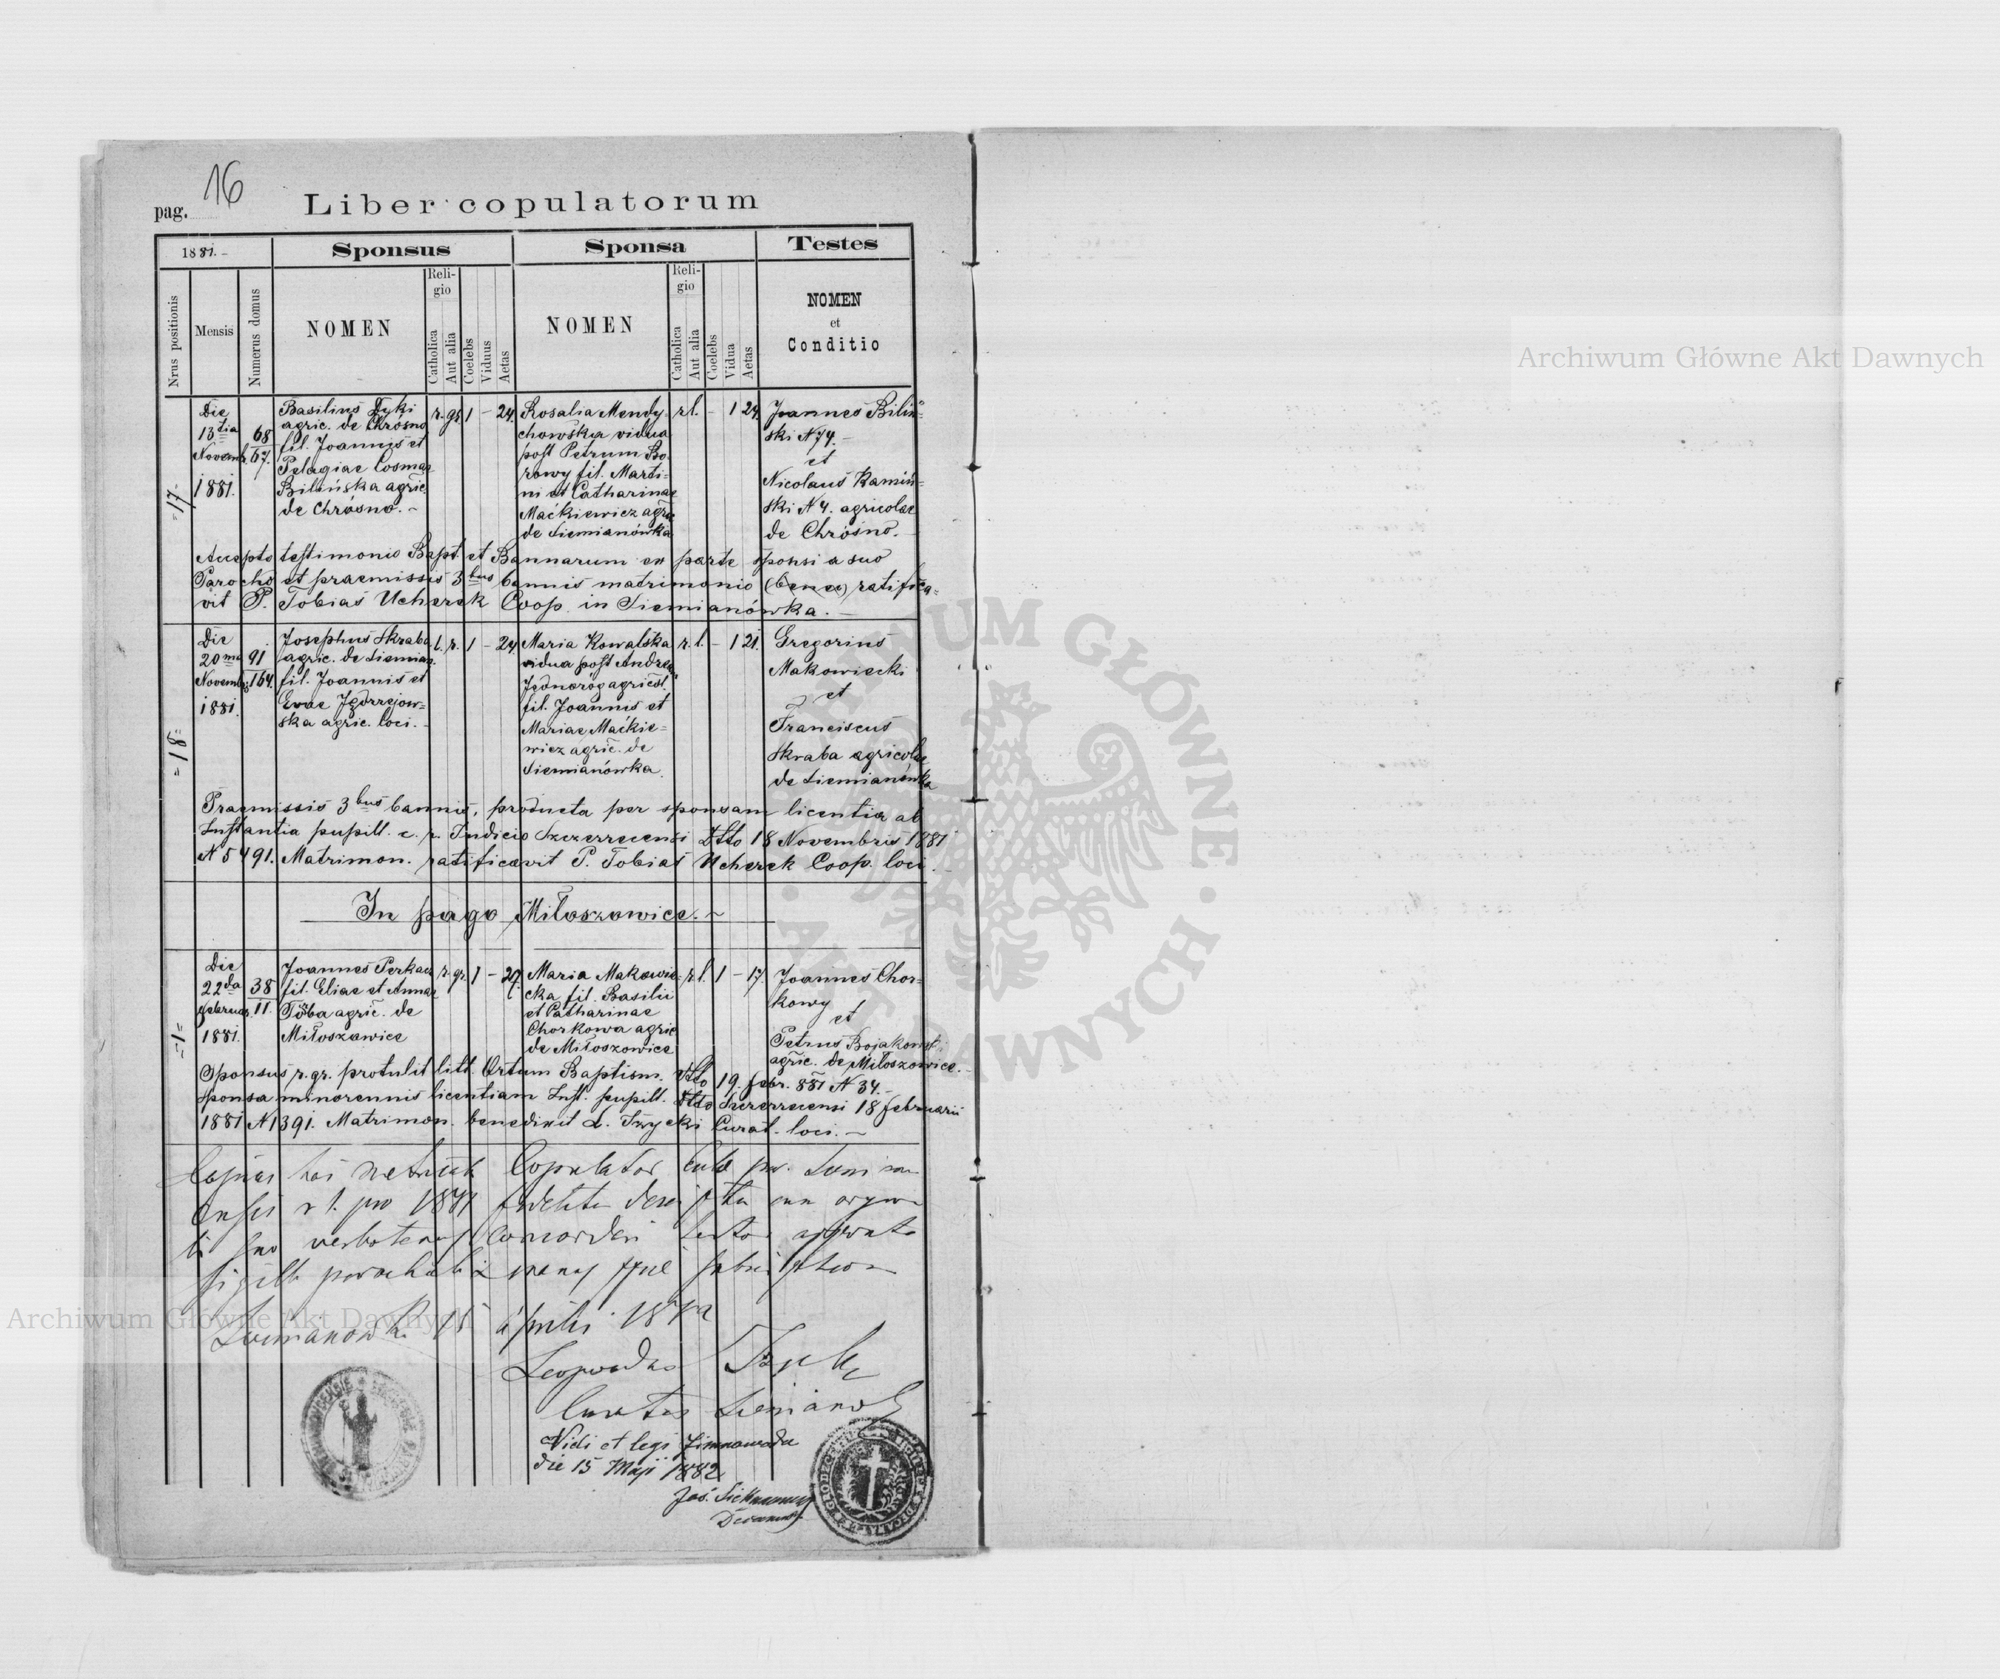 pag. 16
Liber copulatorum
1881.
Sponsus
Sponsa
Testes
Nrus positionis
Mensis
Numerus domus
NOMEN
Religio
Catholica
Aut alia
Coelebs
Viduus
Aetas
NOMEN
Religio
Catholica
Aut alia
Coelebs
Vidua
Aetas
NOMEN
et
Conditio
=17=
Die
13tia
Novemb.
1881.
68
67.
Basilius Dyki
agric. de Chrósno
fil. Joannis et
Pelagiae Cosmae
Bilińska agric.
de Chrósno. -
r. gr. 1 - 24.
Rosalia Mendy
chowska vidua
post Petrum Bo-
rowy fil. Marti-
ni et Catharinae
Maćkiewicz agric
de Siemianówka
r.l. - 1 24.
Joannes Biliń-
ski N 74. -
et
Nicolaus Kamiń-
ski N 4. agricolae
de Chrósno.
Accepto testimonio Bapt. et Bannarum ex parte sponsi a suo
Parocho et praemissis 3bus bannis matrimonio (bene) ratifica-
vit P. Tobias Ucherek Coop. in Siemianówka. -
=18=
Die
20ma
Novemb.
1881.
91
164.
Josephus Skraba
agric. de Siemian.
fil. Joannis et
Evae Jędrzejow-
ska agric. loci. -
l. r. 1 - 24.
Maria Kowalska
vidua post Andrea
Jednoróg agricol.
fil. Joannis et
Mariae Maćkie-
wicz agric. de
Siemianówka.
r. l. - 1 21.
Gregorius
Makowiecki
et
Franciscus
Skraba agricolae
de Siemianówka
Praemissis 3bus bannis, producta per sponsam licentia ab
Instantia pupill. c. r. Judicio Szczerzecensi Dtto 18 Novembris 1881
N 5491. Matrimon. ratificavit P. Tobias Ucherek Coop. loci. -
In pago Miłoszowice. -
=1=
Die
22da
Februar.
1881.
38
11.
Joannes Perkacz
fil. Eliae et Annae
agric. de
Miłoszowice
r. gr. 1 - 27.
Maria Makowie-
cka fil. Basilii
et Catharinae
Chorkowa agric
de Miłoszowice
r.l. 1 - 17.
Joannes Chor-
kowy
et
Petrus
agric. de Miłoszowice. -
Sponsus r. gr. protulit litt. Ortum Baptism. Dtto 19. Febr. 881 N 34. -
Sponsa minorennis licentiam Inst. pupill. Dtto Szczerzecensi 18 Februarii
1881 N 1391. Matrimon. benedixit L. Trzycki Curat. loci. -
Copulator
r l. pro 1881
verbotenus
sigillo parochiali
15 Aprilis
Leopoldus
Curatus
Vidi et legi Zimnawoda
die 15 Maji 1882
Jos.
Decanus
Archiwum Główne Akt Dawnych
Archiwum Główne Akt Dawnych
ARCHIWUM GŁÓWNE · AKT DAWNYCH ·